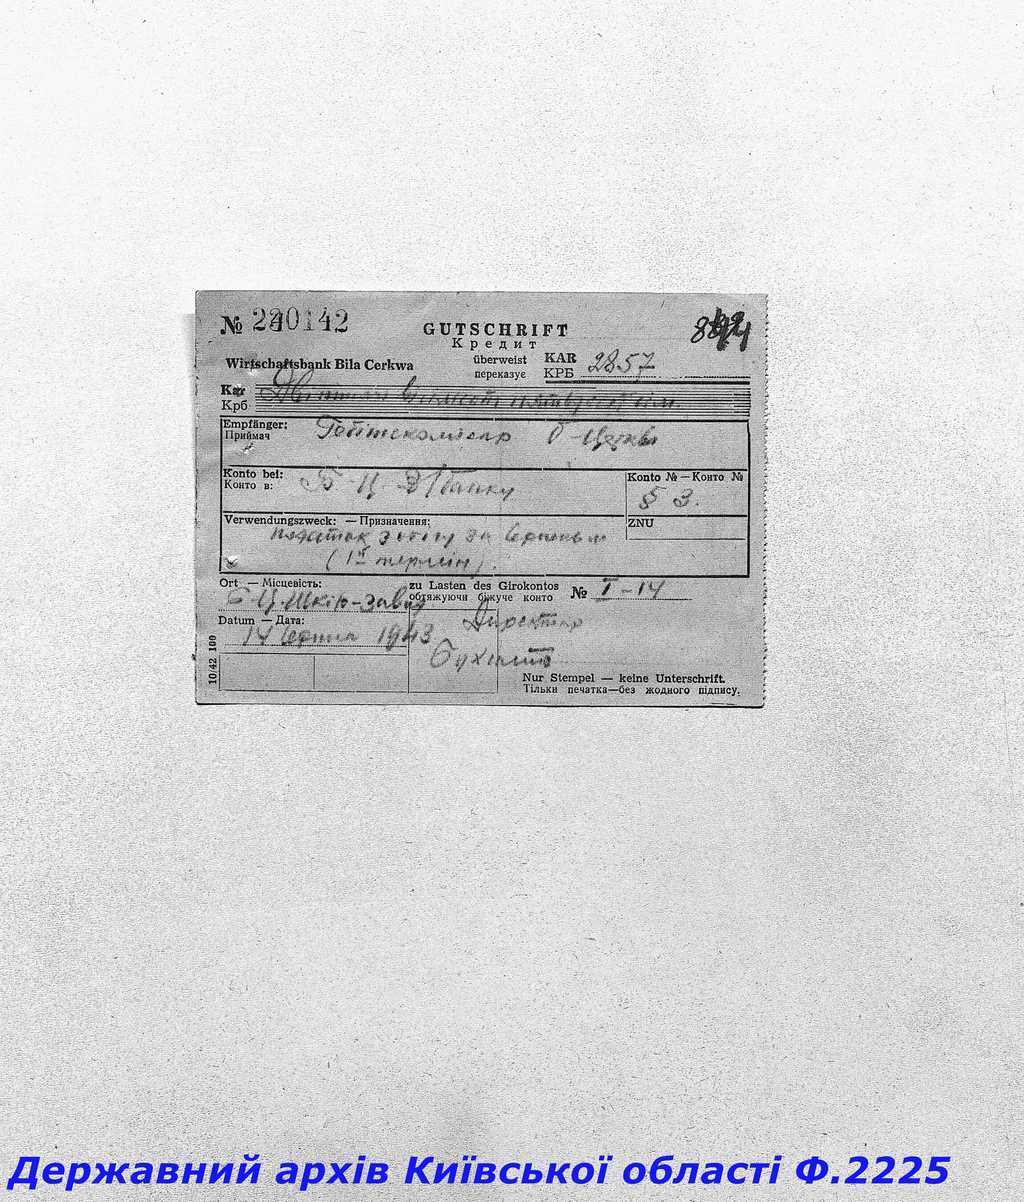 № 220142
GUTSCHRIFT
Кредит
Wirtschaftsbank Bila Cerkwa
überweist KAR 2857
переказує КРБ
Kar Дві тисячі вісімсот пятьдесят сім
Крб
Empfänger: Гебітскомісар Б-Церкви
Приймач
Konto bei: Б-Ц банку
Конто в:
Konto № — Конто №
§ 3.
Verwendungszweck: — Призначення:
податок з за Серпень
(1й термін).
ZNU
Ort — Місцевість:
Б-Ц. Шкір-завод
zu Lasten des Girokontos
обтяжуючи біжуче конто № I-14
Datum — Дата:
14 серпня 1943
Директор
10/42 100
Nur Stempel — keine Unterschrift.
Тільки печатка—без жодного підпису.
Державний архів Київської області Ф.2225